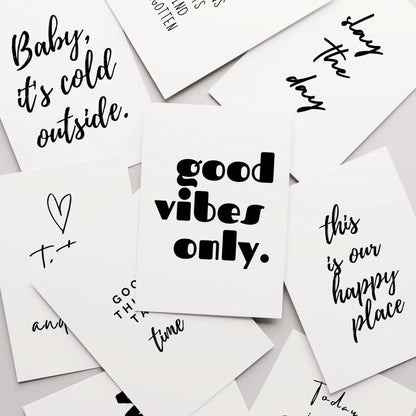 Baby,
it's cold
outside.
IS
END
GOTTEN
slay
the
day
good
vibes
only.
this
is our
happy
place
and
GOO
THI
TA
time
Today